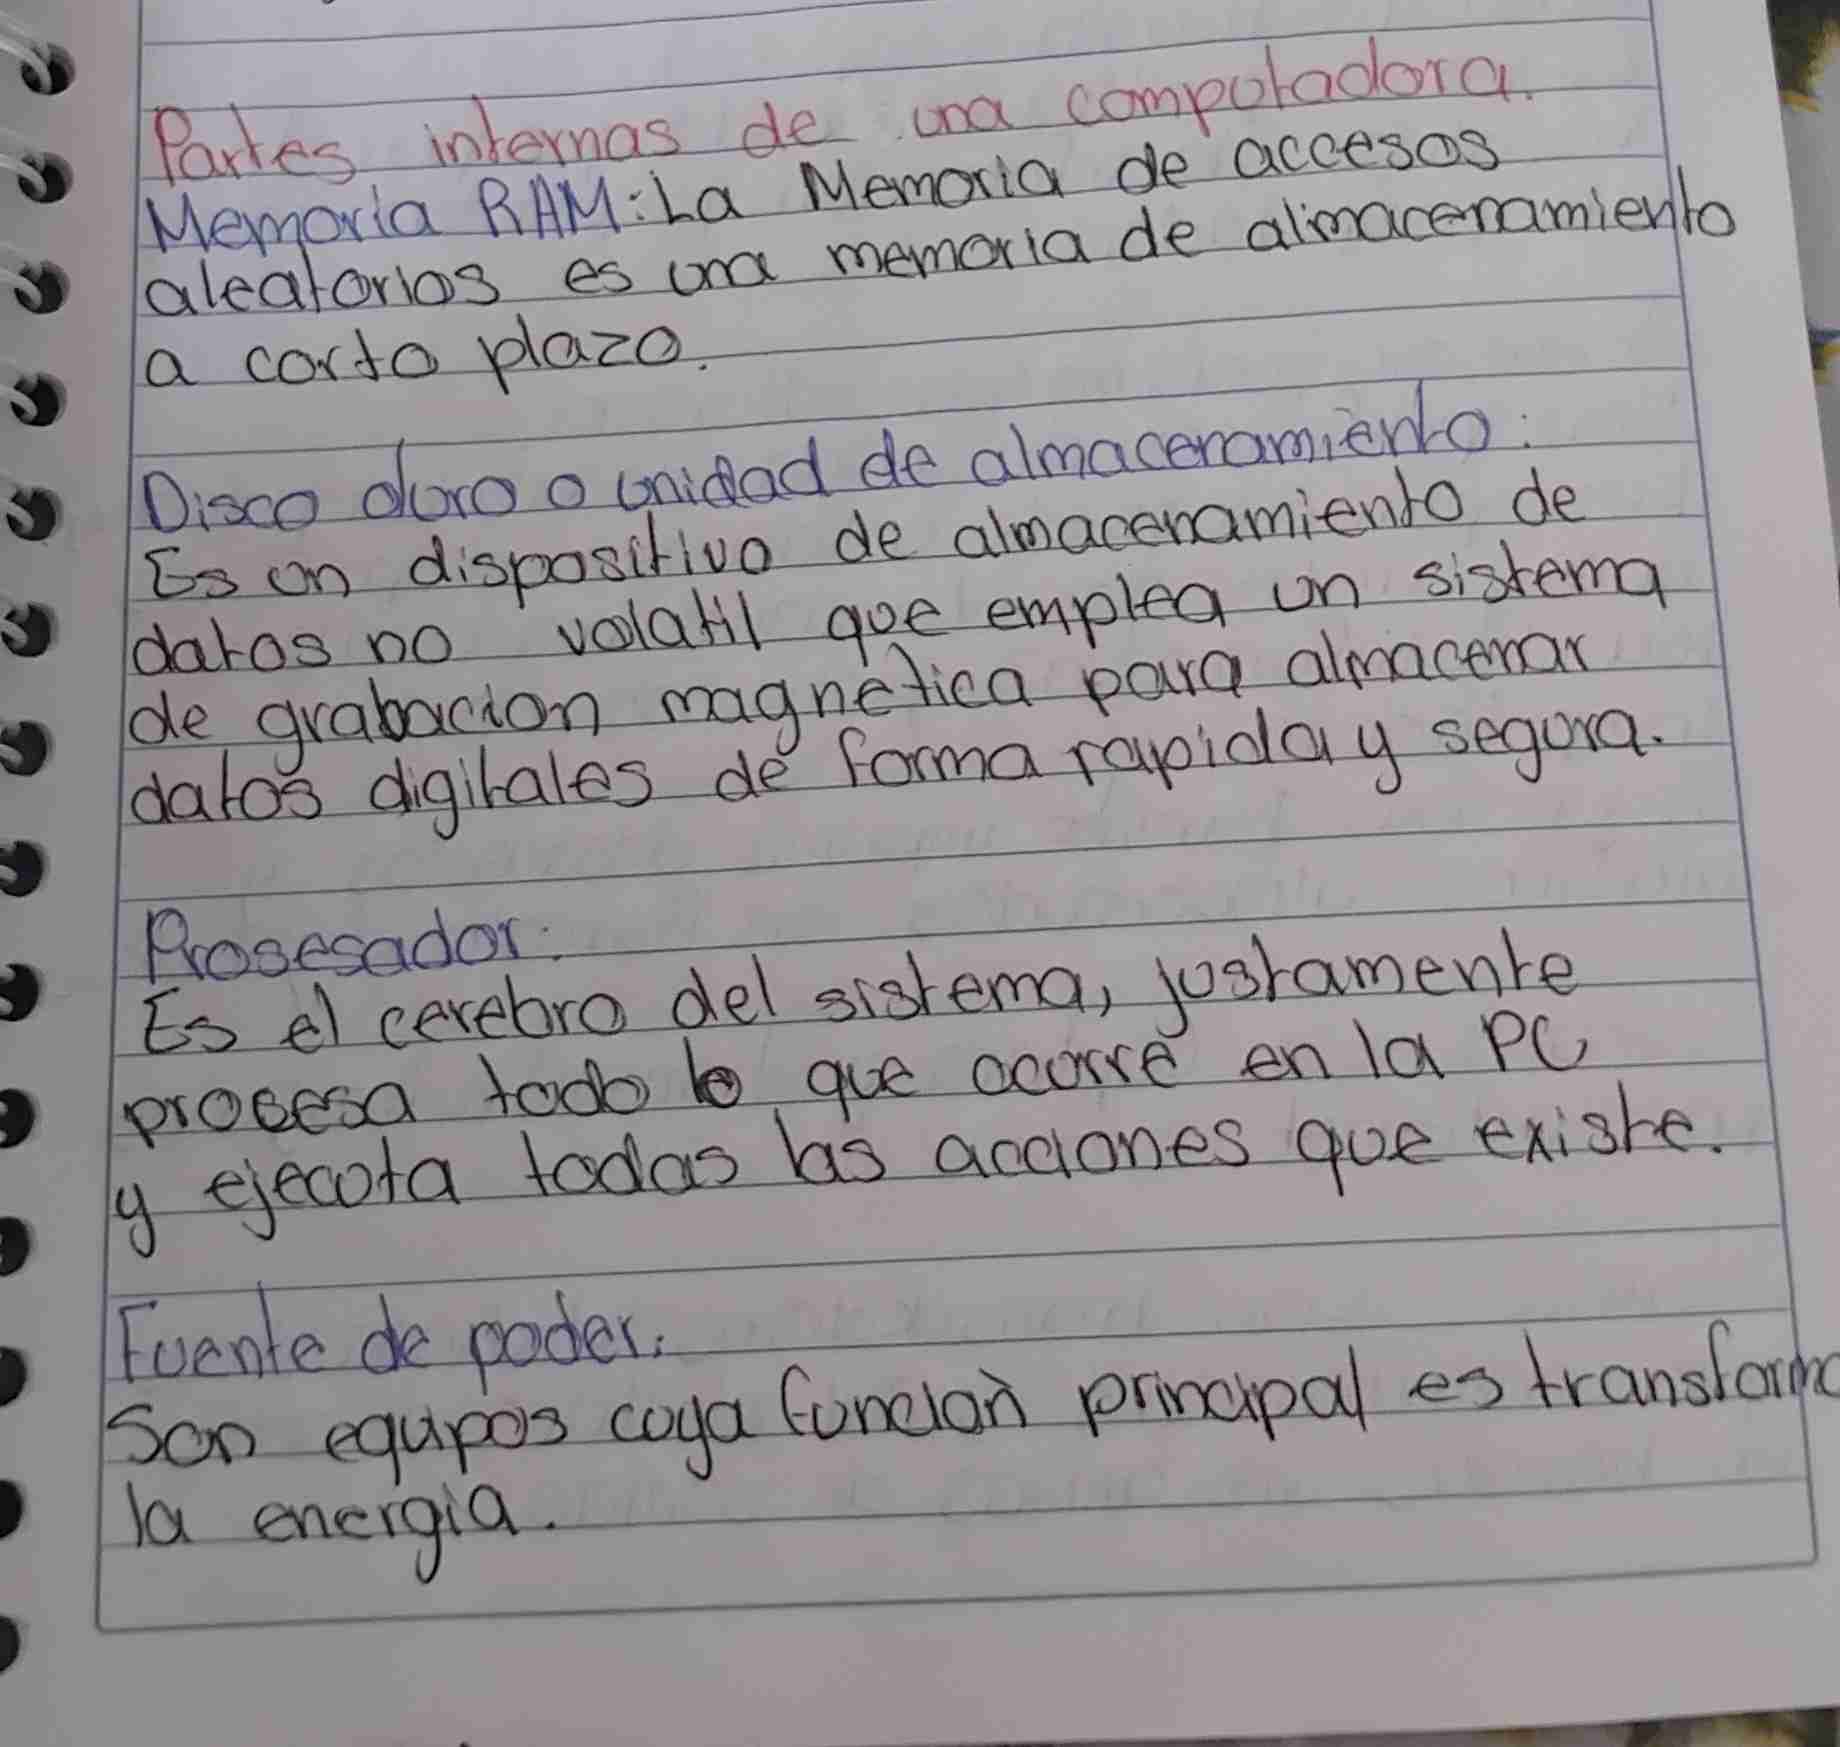 Partes internas de una computadora.
Memoria RAM: La Memoria de accesos
aleatorios es una memoria de almacenamiento
a corto plazo.
Disco duro o unidad de almacenamiento:
Es un dispositivo de almacenamiento de
datos no volatil que emplea un sistema
de grabacion magnética para almacenar
datos digitales de forma rapida y segura.
Prosesador:
Es el cerebro del sistema, justamente
procesa todo lo que ocurre en la PC
y ejecuta todas las acciones que existe.
Fuente de poder:
Son equipos cuya función principal es transforma
la energia.